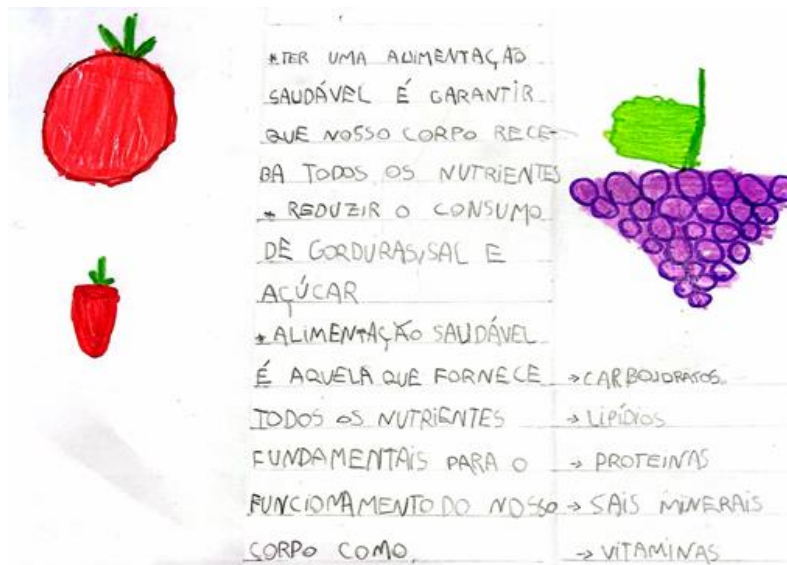 *TER UMA ALIMENTAÇÃO
SAUDÁVEL É GARANTIR
QUE NOSSO CORPO RECE-
BA TODOS OS NUTRIENTES
* REDUZIR O CONSUMO
DE GORDURAS, SAL E
AÇÚCAR
*ALIMENTAÇÃO SAUDÁVEL
É AQUELA QUE FORNECE
TODOS OS NUTRIENTES
FUNDAMENTAIS PARA O
FUNCIONAMENTO DO NOSSO
CORPO COMO
→ CARBOIDRATOS
→ LIPÍDIOS
→ PROTEINAS
→ SAIS MINERAIS
→ VITAMINAS